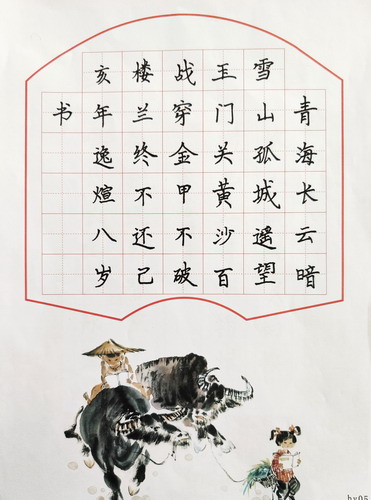 青海长云暗
雪山孤城遥望
王门关黄沙百
战穿金甲不破
楼兰终不还己
亥年逸煊八岁
书